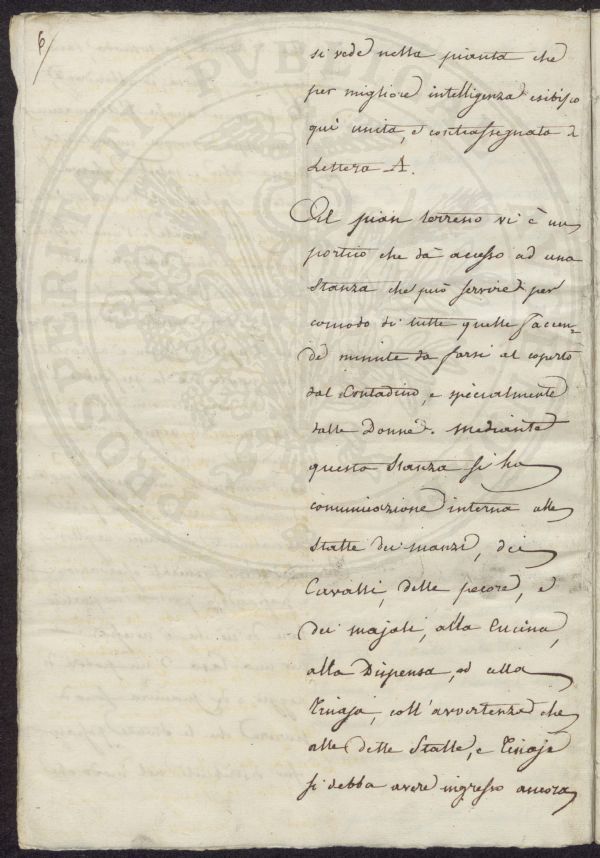 6
si vede nella pianta che
per migliore intelligenza esibisco
quì unita, e contrassegnata di
Lettera A.
Al pian terreno vi è un
portico che dà accesso ad una
Stanza che può servire per
comodo di tutte quelle faccen-
de minute da farsi al coperto
dal Contadino, e specialmente
dalle Donne. Mediante
questa Stanza si ha
comunicazione interna alle
Stalle dei manzi, dei
Cavalli, delle pecore, e
dei majali, alla Cucina,
alla Dispensa, ed alla
Tinaja, coll'avvertenza che
alle dette Stalle, e Tinaja
si debba avere ingresso ancora
PROSPERITATI PVBLICAE